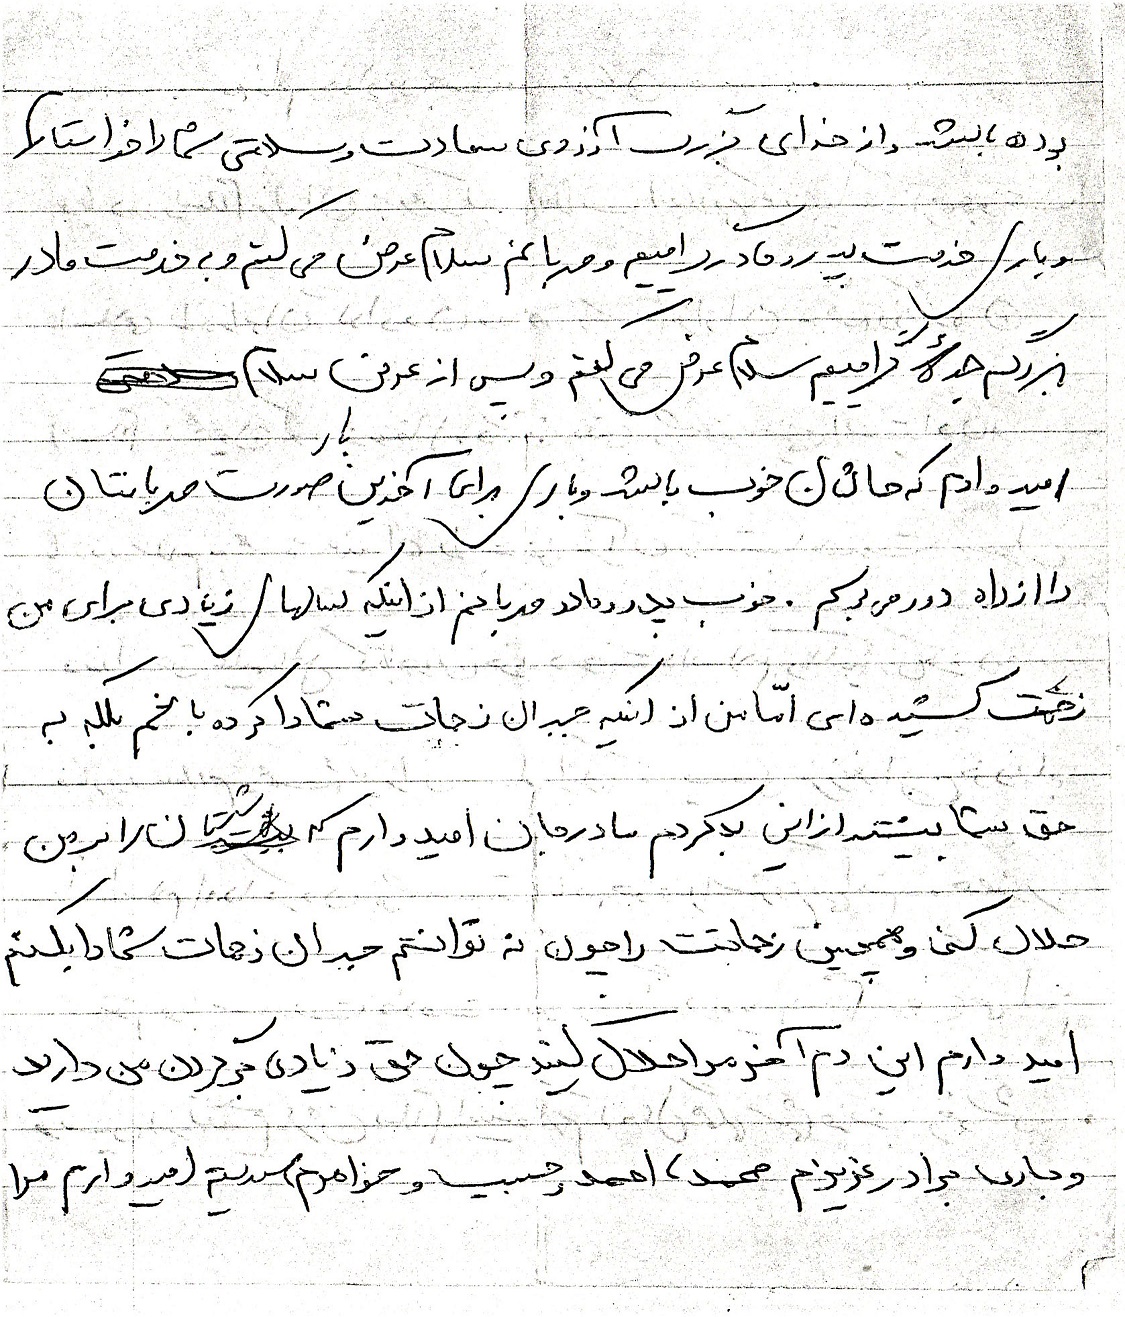 بوده باشد و از خدای بزرگ آرزوی سعادت و سلامتی شما را خواستارم
و باری خدمت پدر و مادر گرامیم و مهربانم سلام عرض می کنم و به خدمت مادر
بزرگم جده گرامیم سلام عرض می کنم و پس از عرض سلام
امیدوارم که حالتان خوب باشد و باری برای آخرین بار صورت مهربانتان
را از راه دور می بوسم . خوب پدر و مادر مهربانم از اینکه سالهای زیادی برای من
زحمت کشیده ای امّا من از اینکه جبران زحمات شما را کرده باشم بلکه به
حق شما بیشتر از این بد کردم مادر جان امیدوارم که شیرتان را بر من
حلال کنی و همچنین زحمات را چون نه توانستم جبران زحمات شما را بکنم
امید وارم این دم آخر مرا حلال کنید چون حق زیادی بر گردن من دارید
و باری برادر عزیزم محمد، احمد و حسیب و خواهرم امیدوارم مرا